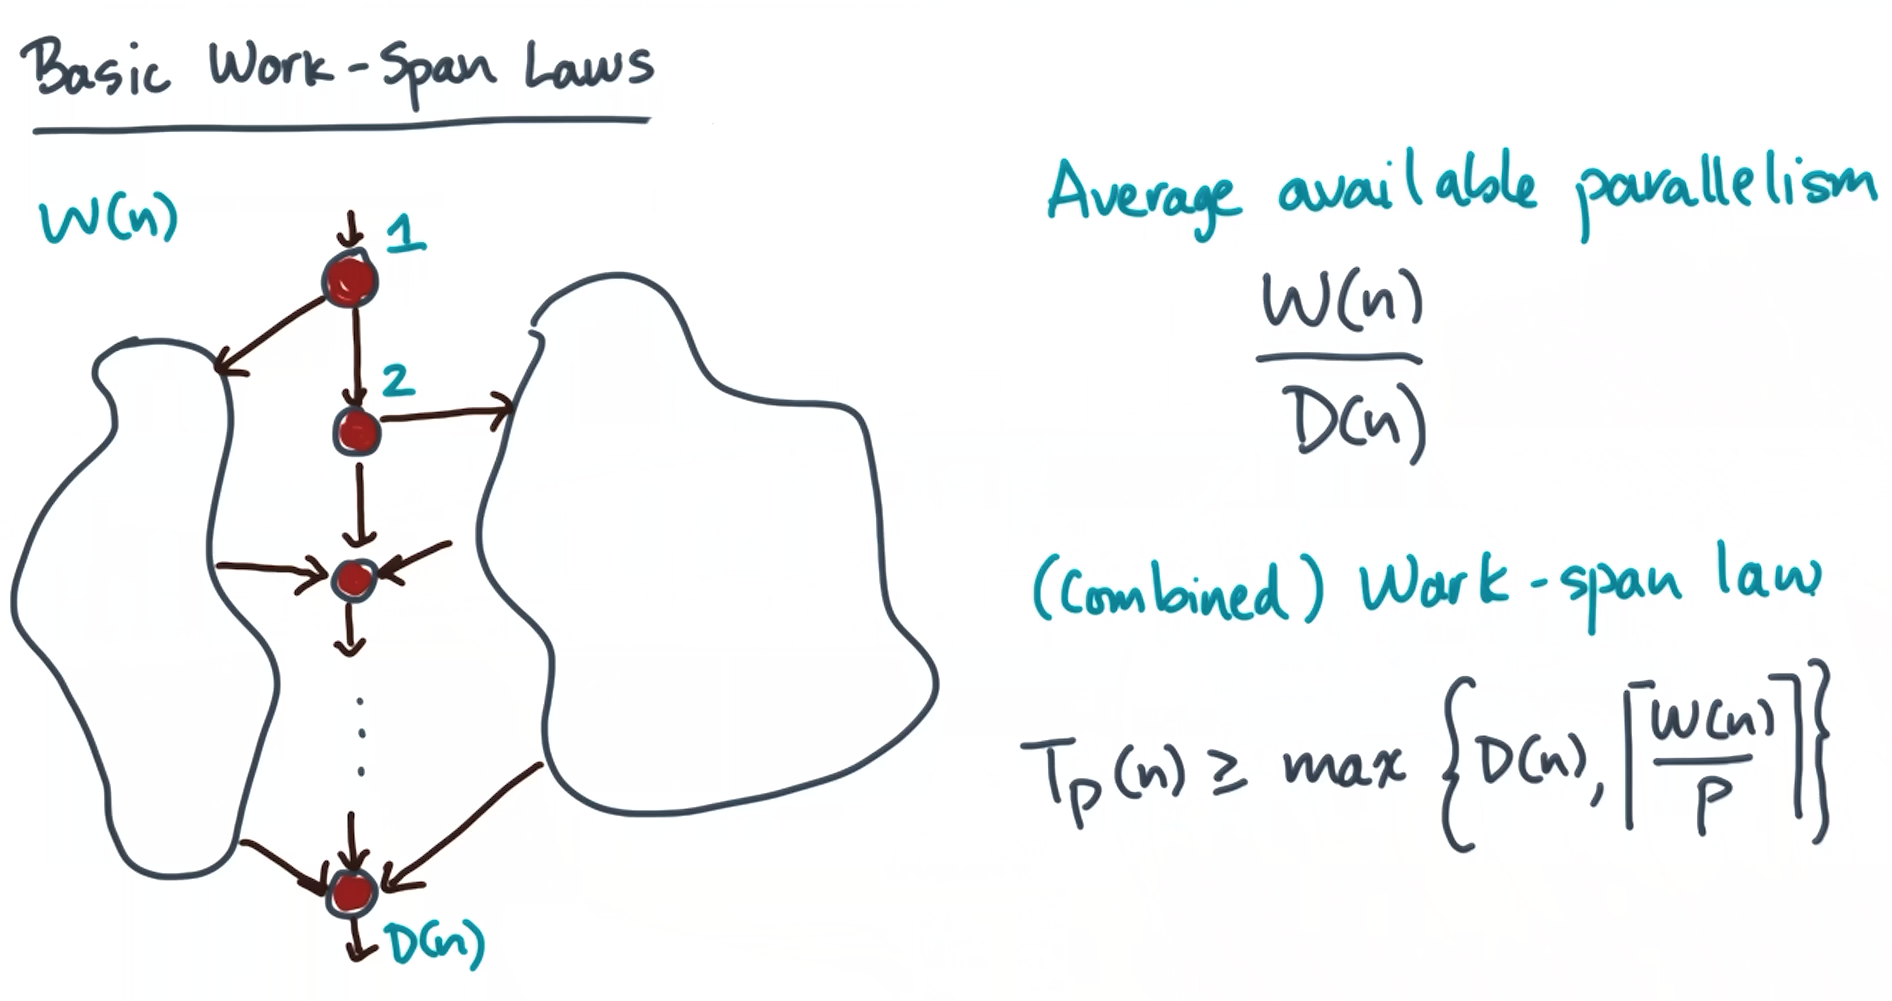 Basic Work-Span Laws
W(n)
1
2
D(n)
Average available parallelism
W(n)
D(n)
(Combined) Work-span law
Tp(n) ≥ max {D(n), ⌈W(n)/P⌉}